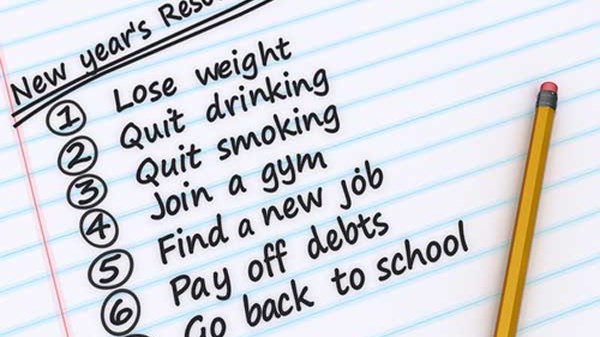 New year's
1 Lose weight
2 Quit drinking
3 Quit smoking
4 Join a gym
5 Find a new job
6 Pay off debts
Go back to school